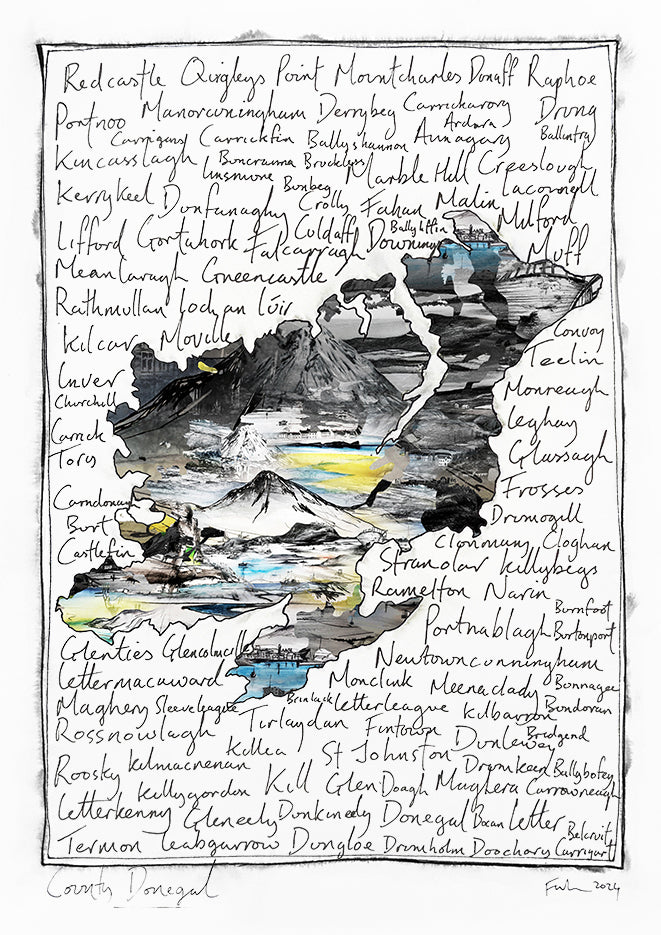 Redcastle Quigleys Point Mountcharles Donaff Raphoe
Portnoo Manorcunningham Derrybeg Carrickarory Drung
Ardara
Carrigans Carrickfin Ballyshannon Annagary Ballintra
Kincasslagh Buncranna Bruckless Marble Hill Creeslough
Linsmore Bunbeg Laconnell
Kerrykeel Dunfanaghy Crolly Fahan Malin Milford
Lifford Gortahork Falcarragh Culdaff Downings Ballyliffin Muff
Meanlaragh Greencastle
Rathmullan Loch an Iúir
Kilcar Moville
Convoy
Teelin
Inver
Churchill
Monreagh
Carrick
Leghay
Tory
Glassagh
Frosses
Carndonagh
Burt
Dromogill
Castlefin
Clonmany Cloghan
Stranolar Killybegs
Ramelton Narin
Burnfoot
Portnablagh Burtonport
Glenties Glencolmcille
Newtowncunningham
Lettermacaward Monclink Meenaclady Bunnagee
Maghery Sleeveleague Brinlack Letterleague Kilbarron Bundoran
Rossnowlagh Tirlaydan Fintown Dunlewey Bridgend
Killea St Johnston
Roosky Kilmacrenan Drumkeen Ballybofey
Killygordon Kill Glen Doagh Maghera Currowreagh
Letterkenny Gleneely Dunkineely Donegal Letter Belcruit
Termon Leabgarrow Dungloe Dromholm Doochary Carrigart
County Donegal
2024